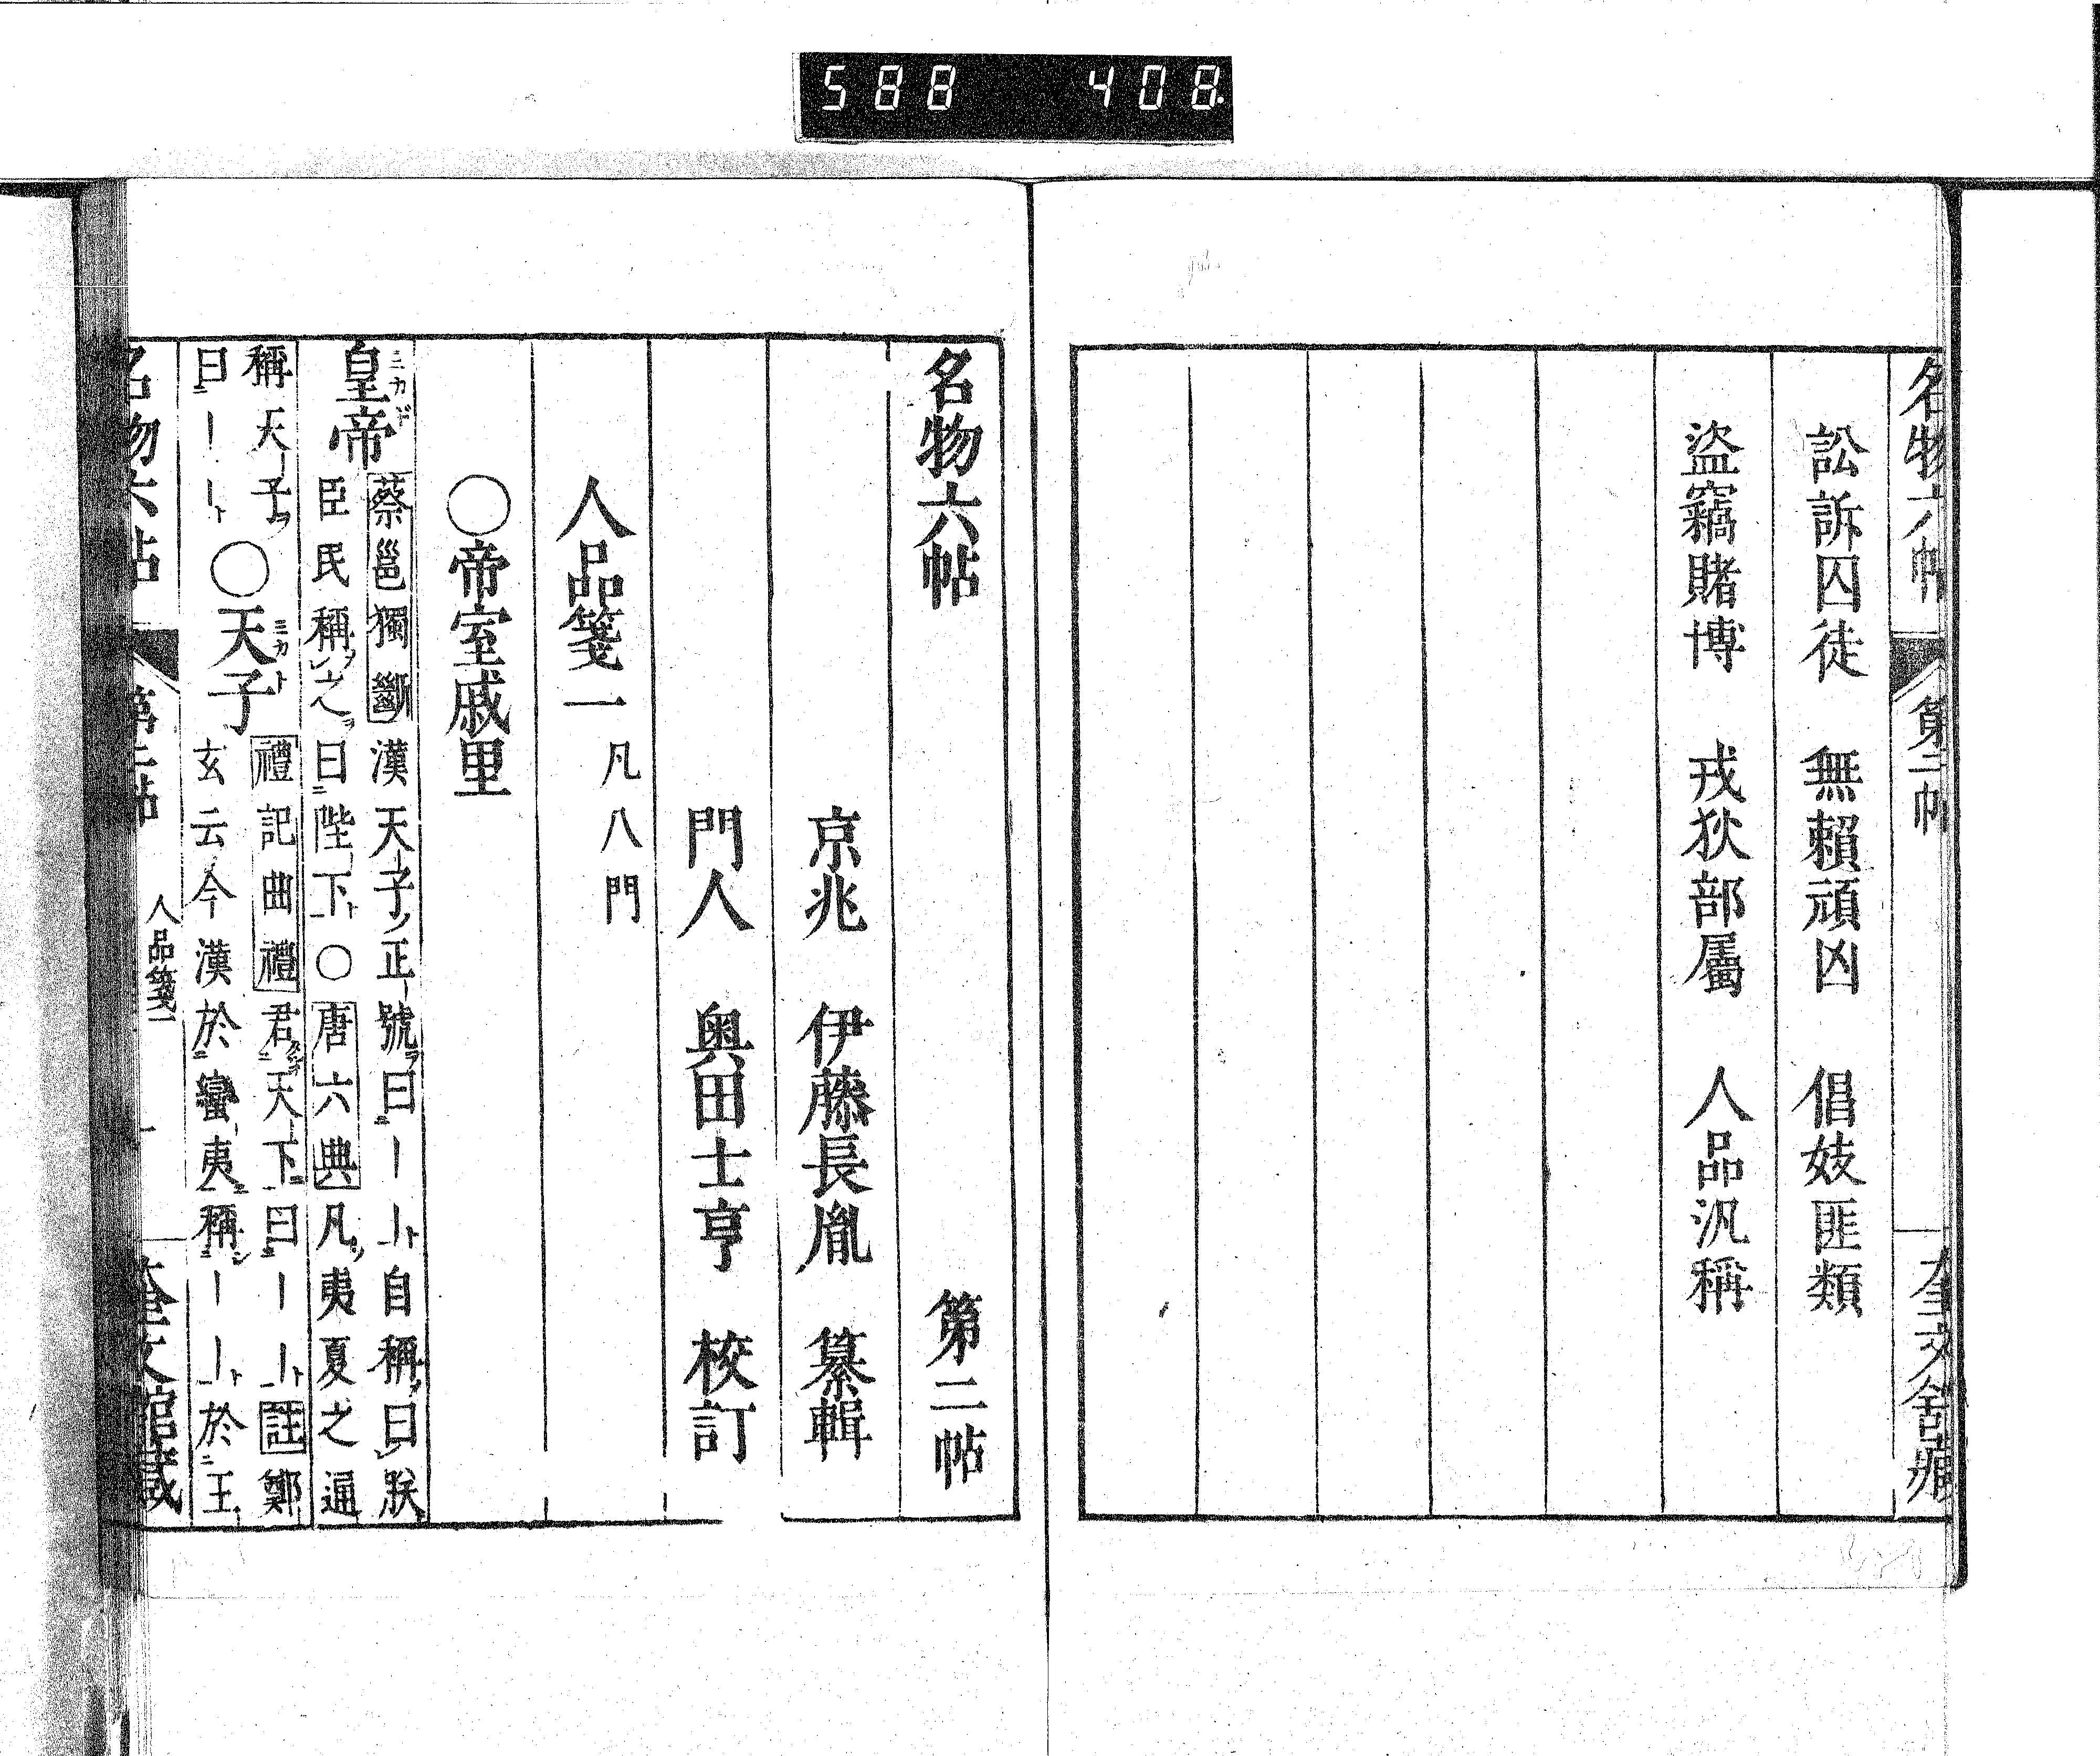 588 408.
名物六帖 第二帖 奎文舍藏
訟訴囚徒 無賴頑凶 倡妓匪類
盜竊賭博 戎狄部屬 人品汎稱
名物六帖 第二帖
京兆 伊藤長胤 纂輯
門人 奥田士亨 校訂
人品箋一 凡八門
〇帝室戚里
皇帝 ミカド
蔡邕獨斷漢天子ノ正號ヲ曰｜｜ト自稱曰朕
臣民稱之曰陛下ト〇唐六典凡夷夏之通
稱天子ヲ
曰｜｜ト〇天子 ミカト
禮記曲禮君天下曰｜｜ト註鄭
玄云今漢於蠻夷稱｜｜ト於王
名物六帖 第二帖 人品箋一 一 奎文館藏